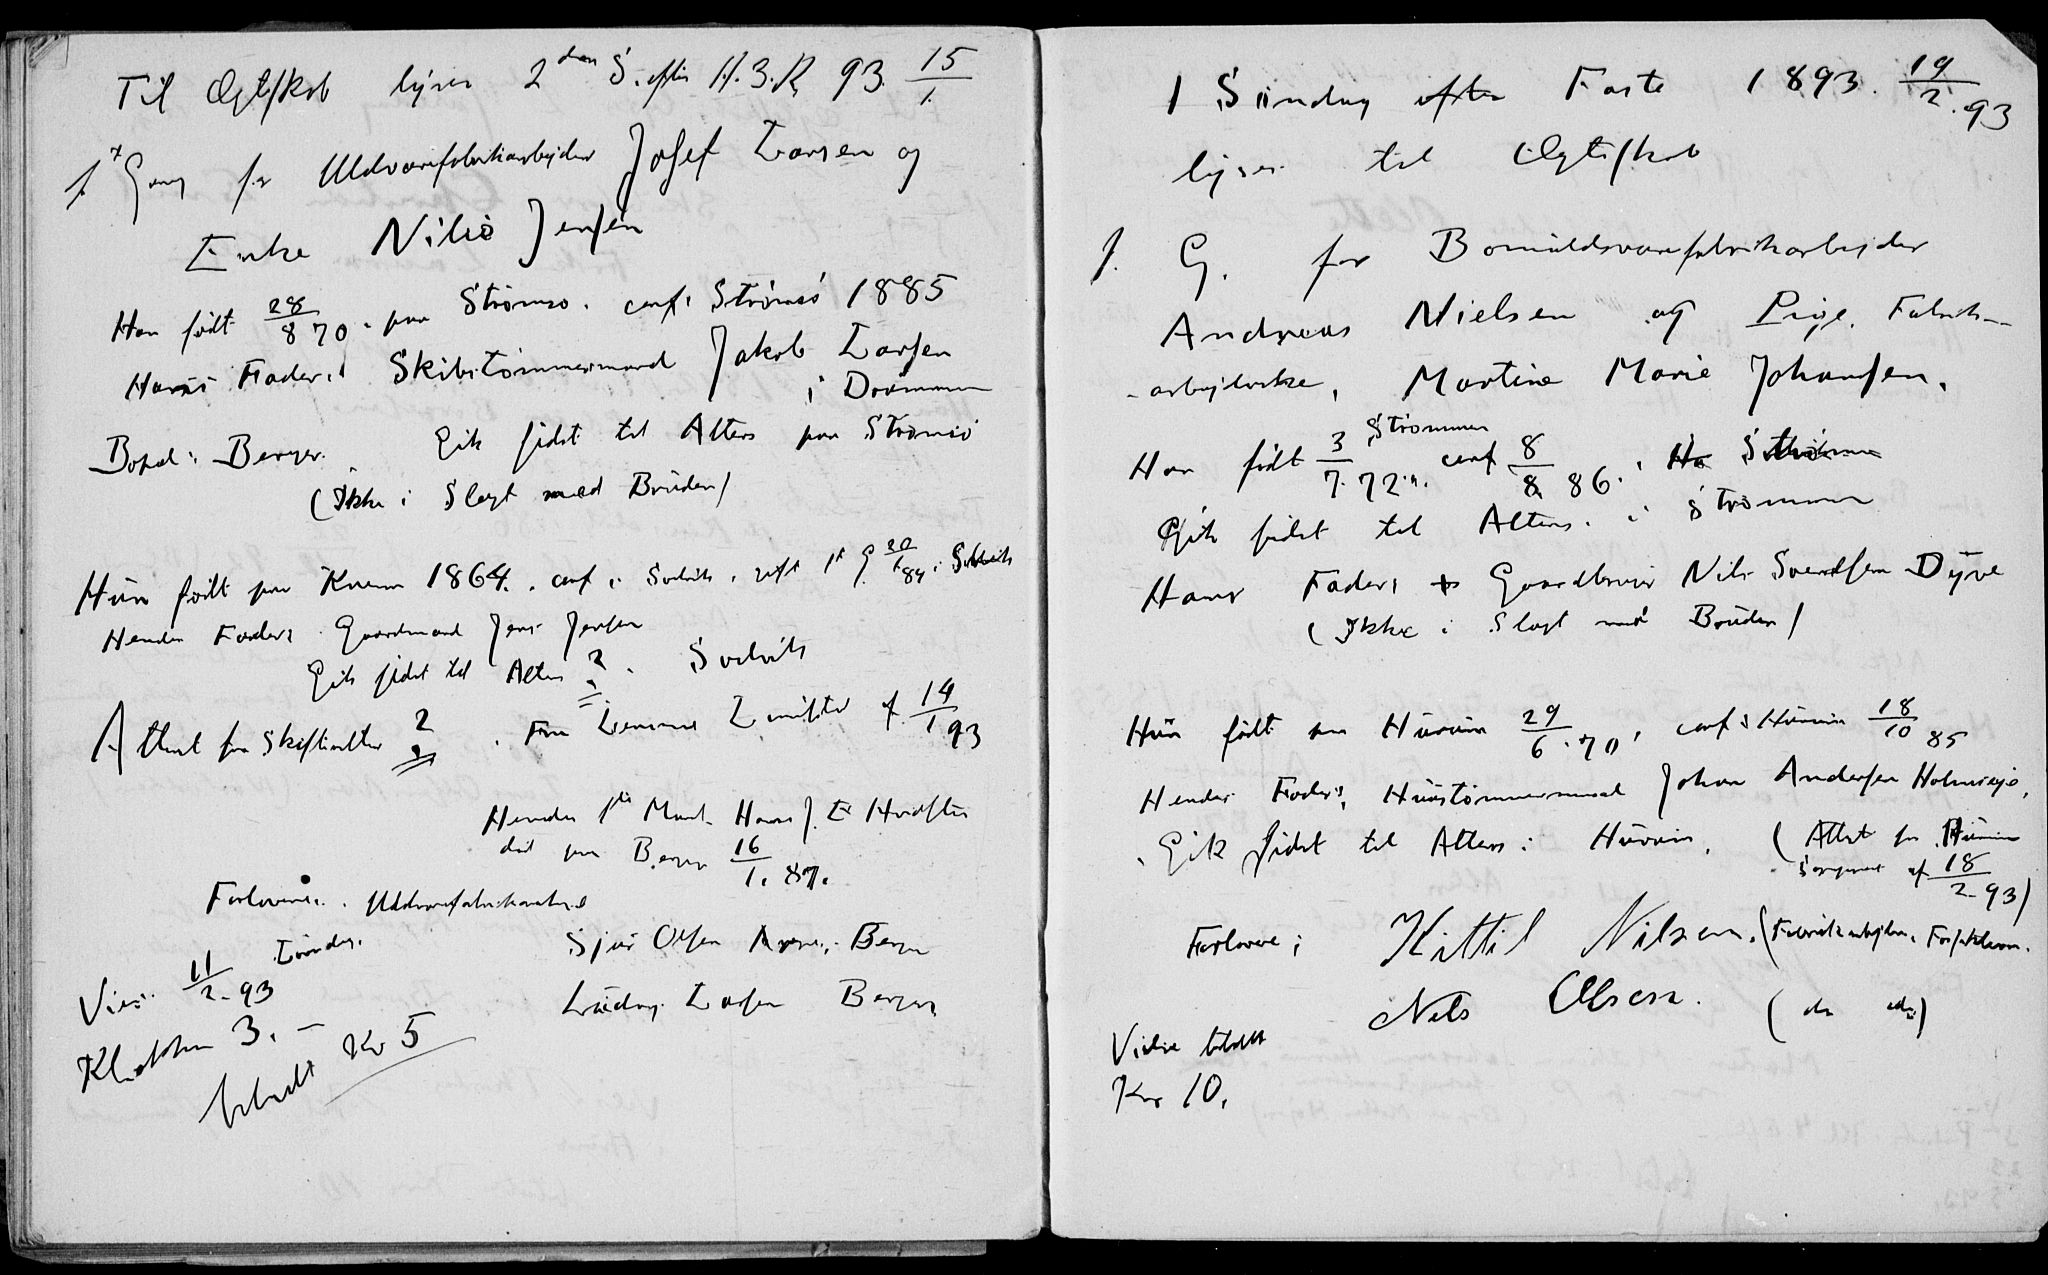 Til Ægteskab lyses 2den S. efter H. 3. K. 93. 15/1.
1. Gang for Uldvarefabrikarbejder Josef Larsen og
Enke Nilio Jensen
Han født 28/8 70. paa Strømsø. conf. i Strømsø 1885
Hans Fader: Skibstømmermand Jakob Larsen
i Drammen
Bopæl: Berger. Gik sidst til Alters paa Strømsø
(Ikke i Slægt med Bruden)
Hun født paa 1864. conf. i Svelvik. gift 1ste G. 20/1 84 i Svelvik
Hendes Fader: Gaardmand Jens Jensen
Gik sidst til Alters ? i Svelvik
Attest fra Skifteretten ? . Fra af 14/1 93
Hendes 1ste Mand Hans J. E.
død paa Berger 16/1. 87.
Forlovere: Uldvarefabrikarbejd
Sjur Olsen Berger
Viet. 11/2-93 Lørdag.
Ludvig Larsen Berger
Klokken 3. –
betalt Kr 5
1 Søndag efter Faste 1893. 19/2.93
lyses til Ægteskab
1. G. for Bomuldsvarefabrikarbejder
Andreas Nielsen og Pige, Fabrik-
-arbejderske, Martine Marie Johansen.
Strømmen
Han født 3/7.72. conf 8/8 86. i
Gik sidst til Alters. i Strømmen
Hans Fader: + Gaardbruger Nils Svendsen Dyve
(Ikke i Slægt med Bruden)
Hun født paa Hurum 29/6.70, conf i Hurum 18/10 85
Hendes Fader: Hustømmermand Johan Andersen Holmseje.
Gik sidst til Alters i Hurum. (Attest fra Hurum
Sogneprest af 18/2-93)
Forlovere: Kittil Nilsen. (Fabrikarbejder, Fossekleven.
Nils Olsen. (do do)
Vielse betalt
Kr 10.